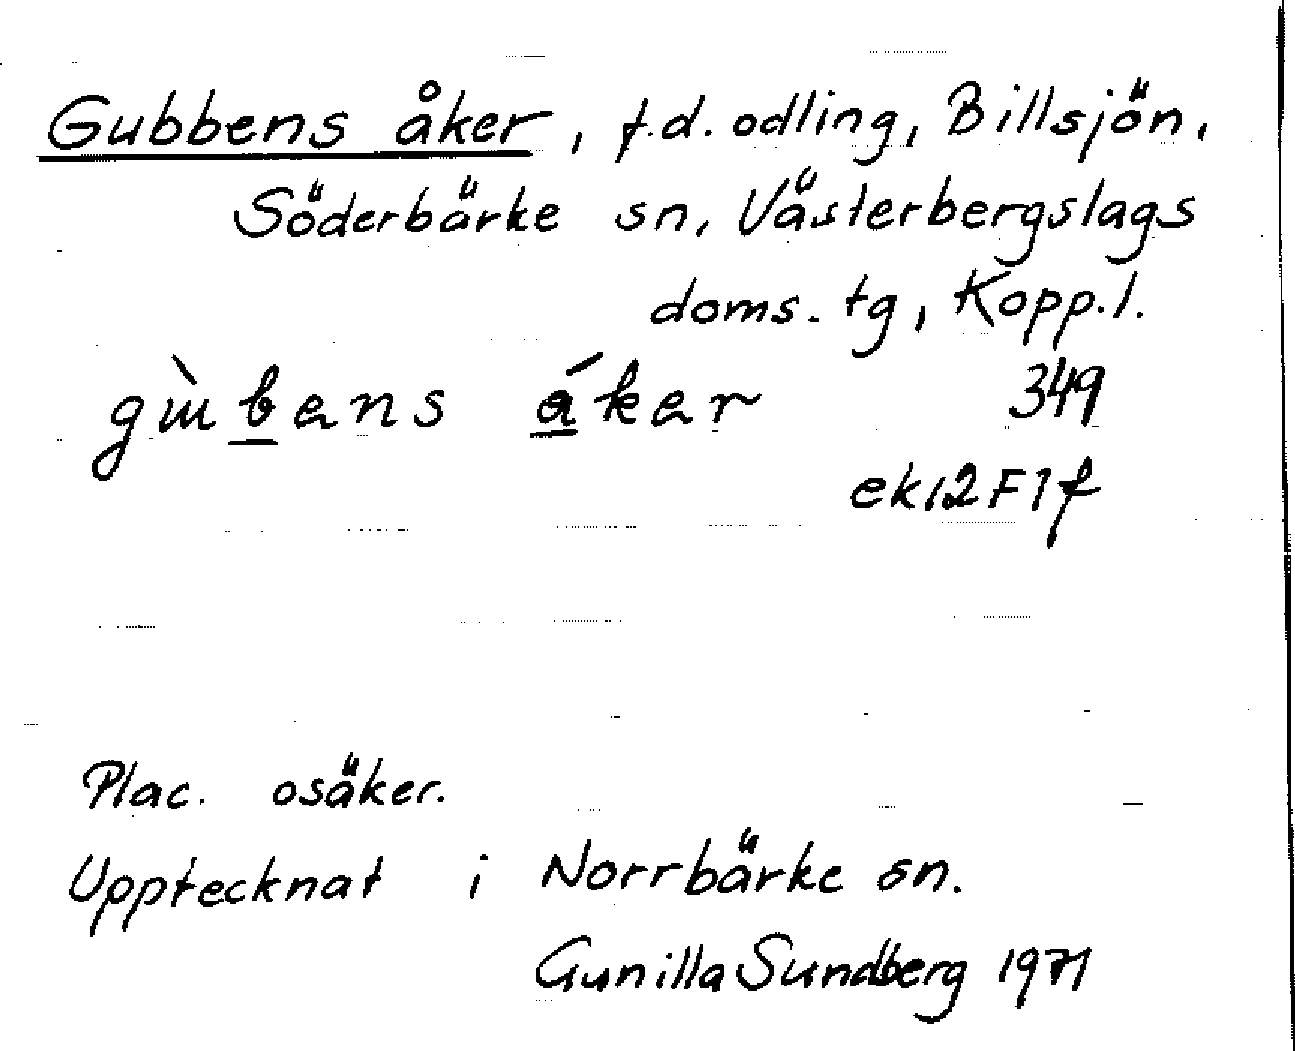 Gubbens åker, f.d. odling, Billsjön,
Söderbärke sn, Västerbergslags
doms. tg, Kopp.l.
349
ek 12F1f
Plac. osäker.
Upptecknat i Norrbärke sn.
Gunilla Sundberg 1971